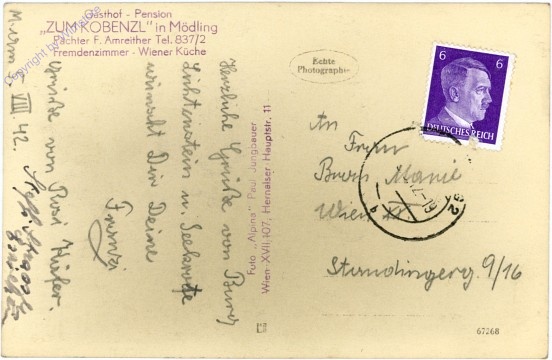 Gasthof - Pension
„ZUM KOBENZL" in Mödling
Pächter F. Amreither Tel. 837/2
Fremdenzimmer - Wiener Küche
Herzliche Grüße von Burg
Lichtenstein u. Seegrotte
wünscht Dir Deine
Franzi
Grüße von Rosi
VIII. 42.
Foto „Alpina" Paul Jungbauer
Wien-XVII, 107, Hernalser Hauptstr. 11
Echte
Photographie
6 6
DEUTSCHES REICH
An Frau
Marie
Wien
9/16
67268